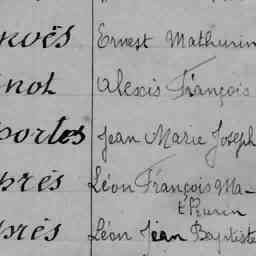 noës Ernest Mathurin
not Alexis François
portes Jean Marie Joseph
près Léon François Ma-
thurin
près Léon Jean Baptiste